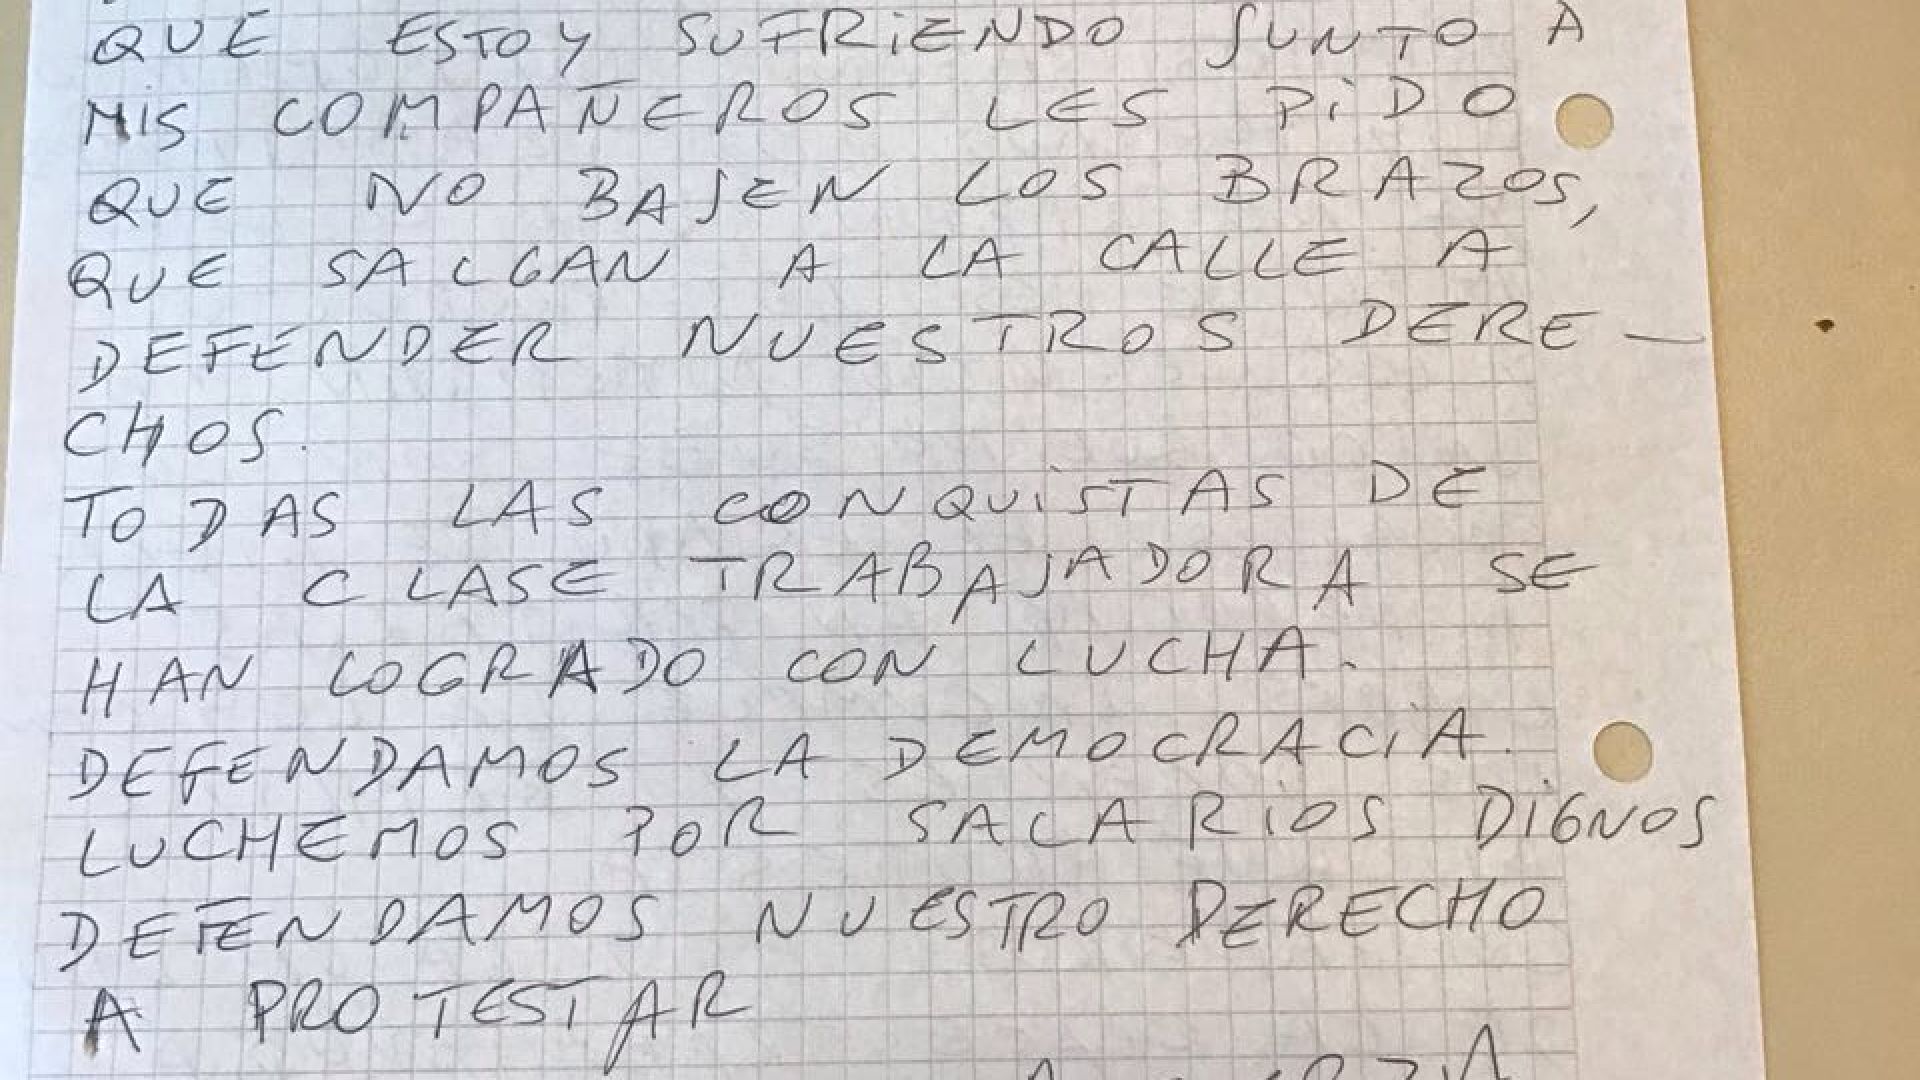 QUE ESTOY SUFRIENDO JUNTO A
MIS COMPAÑEROS LES PIDO
QUE NO BAJEN LOS BRAZOS,
QUE SALGAN A LA CALLE A
DEFENDER NUESTROS DERE-
CHOS.
TODAS LAS CONQUISTAS DE
LA CLASE TRABAJADORA SE
HAN LOGRADO CON LUCHA.
DEFENDAMOS LA DEMOCRACIA.
LUCHEMOS POR SALARIOS DIGNOS
DEFENDAMOS NUESTRO DERECHO
A PROTESTAR